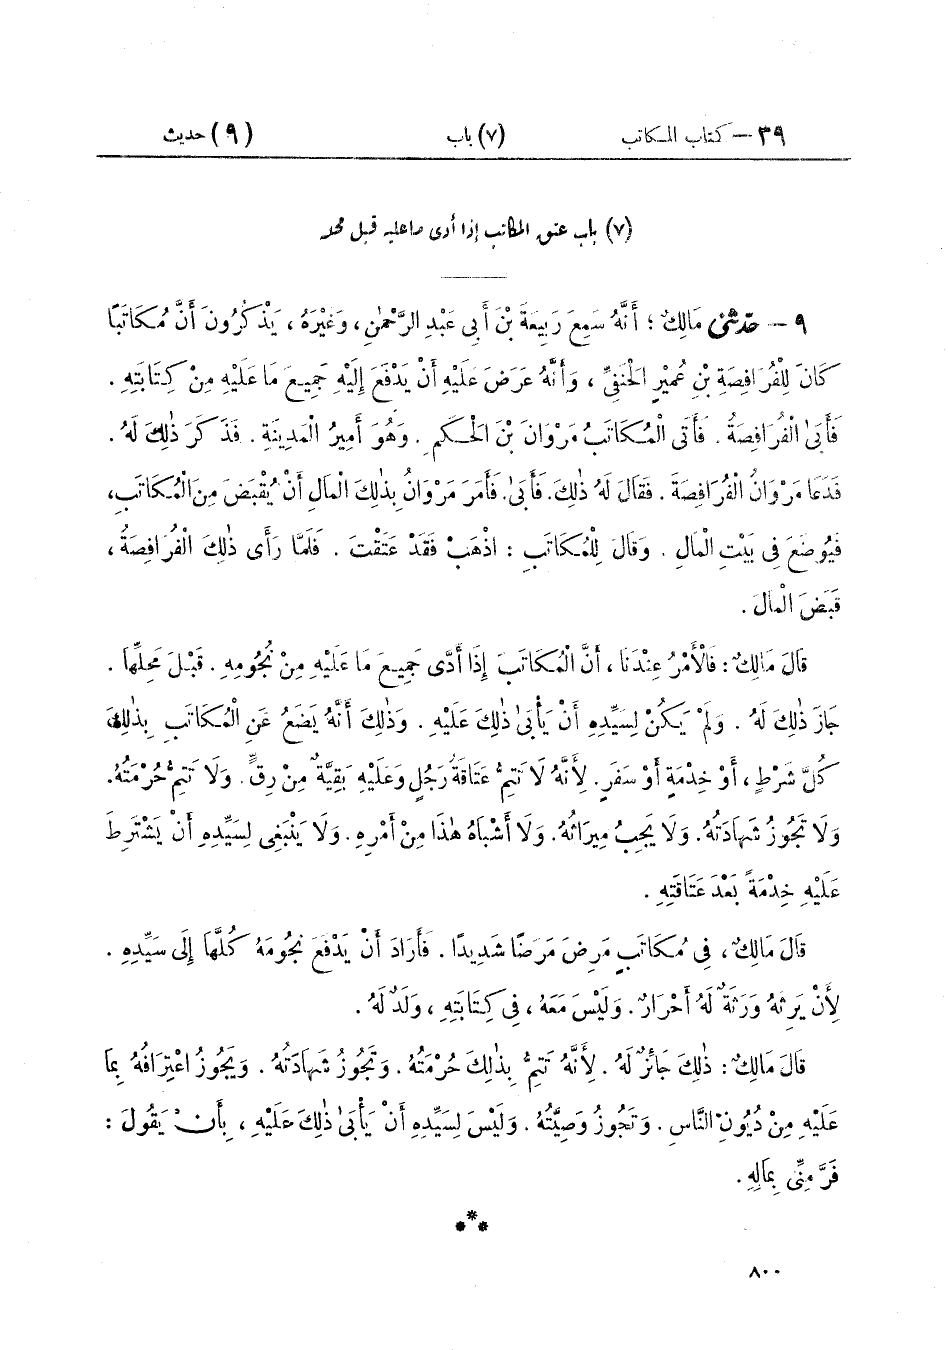 ٣٩ – كتاب المكاتب (٧) باب (٩) حديث
(٧) باب عتق المكاتب إذا أدى ما عليه قبل محله
٩ – حدثنى مَالِكٌ؛ أَنَّهُ سَمِعَ رَبِيعَةَ بْنَ أَبِى عَبْدِ الرَّحْمٰنِ، وَغَيْرَهُ، يَذْكُرُونَ أَنَّ مُكَاتَبًا
كَانَ لِلْفُرَافِصَةِ بْنِ عُمَيْرٍ الْحَنَفِىِّ، وَأَنَّهُ عَرَضَ عَلَيْهِ أَنْ يَدْفَعَ إِلَيْهِ جَمِيعَ مَا عَلَيْهِ مِنْ كِتَابَتِهِ.
فَأَبَى الْفُرَافِصَةُ. فَأَتَى الْمُكَاتَبُ مَرْوَانَ بْنَ الْحَكَمِ. وَهُوَ أَمِيرُ الْمَدِينَةِ. فَذَكَرَ ذٰلِكَ لَهُ.
فَدَعَا مَرْوَانُ الْفُرَافِصَةَ. فَقَالَ لَهُ ذٰلِكَ. فَأَبَىٰ. فَأَمَرَ مَرْوَانُ بِذٰلِكَ الْمَالِ أَنْ يُقْبَضَ مِنَ الْمُكَاتَبِ،
فَيُوضَعَ فِى بَيْتِ الْمَالِ. وَقَالَ لِلْمُكَاتَبِ: اذْهَبْ فَقَدْ عَتَقْتَ. فَلَمَّا رَأَى ذٰلِكَ الْفُرَافِصَةُ،
قَبَضَ الْمَالَ.
قَالَ مَالِكٌ: فَالْأَمْرُ عِنْدَنَا، أَنَّ الْمُكَاتَبَ إِذَا أَدَّى جَمِيعَ مَا عَلَيْهِ مِنْ نُجُومِهِ. قَبْلَ مَحِلِّهَا.
جَازَ ذٰلِكَ لَهُ. وَلَمْ يَكُنْ لِسَيِّدِهِ أَنْ يَأْبَىٰ ذٰلِكَ عَلَيْهِ. وَذٰلِكَ أَنَّهُ يَضَعُ عَنِ الْمُكَاتَبِ بِذٰلِكَ
كُلَّ شَرْطٍ، أَوْ خِدْمَةٍ أَوْ سَفَرٍ. لِأَنَّهُ لَا تَتِمُّ عَتَاقَةُ رَجُلٍ وَعَلَيْهِ بَقِيَّةٌ مِنْ رِقٍّ. وَلَا تَتِمُّ حُرْمَتُهُ.
وَلَا تَجُوزُ شَهَادَتُهُ. وَلَا يَجِبُ مِيرَاثُهُ. وَلَا أَشْبَاهُ هٰذَا مِنْ أَمْرِهِ. وَلَا يَنْبَغِى لِسَيِّدِهِ أَنْ يَشْتَرِطَ
عَلَيْهِ خِدْمَةً بَعْدَ عَتَاقَتِهِ.
قَالَ مَالِكٌ، فِى مُكَاتَبٍ مَرِضَ مَرَضًا شَدِيدًا. فَأَرَادَ أَنْ يَدْفَعَ نُجُومَهُ كُلَّهَا إِلَى سَيِّدِهِ.
لِأَنْ يَرِثَهُ وَرَثَةٌ لَهُ أَحْرَارٌ. وَلَيْسَ مَعَهُ، فِى كِتَابَتِهِ، وَلَدٌ لَهُ.
قَالَ مَالِكٌ: ذٰلِكَ جَائِزٌ لَهُ. لِأَنَّهُ تَتِمُّ بِذٰلِكَ حُرْمَتُهُ. وَتَجُوزُ شَهَادَتُهُ. وَيَجُوزُ اعْتِرَافُهُ بِمَا
عَلَيْهِ مِنْ دُيُونِ النَّاسِ. وَتَجُوزُ وَصِيَّتُهُ. وَلَيْسَ لِسَيِّدِهِ أَنْ يَأْبَىٰ ذٰلِكَ عَلَيْهِ، بِأَنْ يَقُولَ:
فَرَّ مِنِّى بِمَالِهِ.
٨٠٠